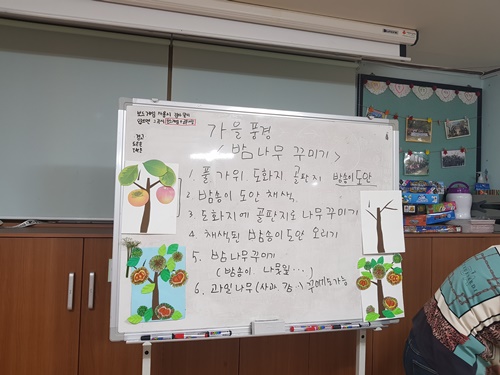 가을 풍경
< 밤나무 꾸미기 >
1. 풀 가위 도화지 골판지 밤송이 도안
2. 밤송이 도안 채색
3. 도화지에 골판지로 나무 꾸미기
4. 채색된 밤송이 도안 오리기
5. 밤나무 꾸미기
(밤송이 나뭇잎...)
6. 과일나무 (사과, 감..) 꾸미기도 가능